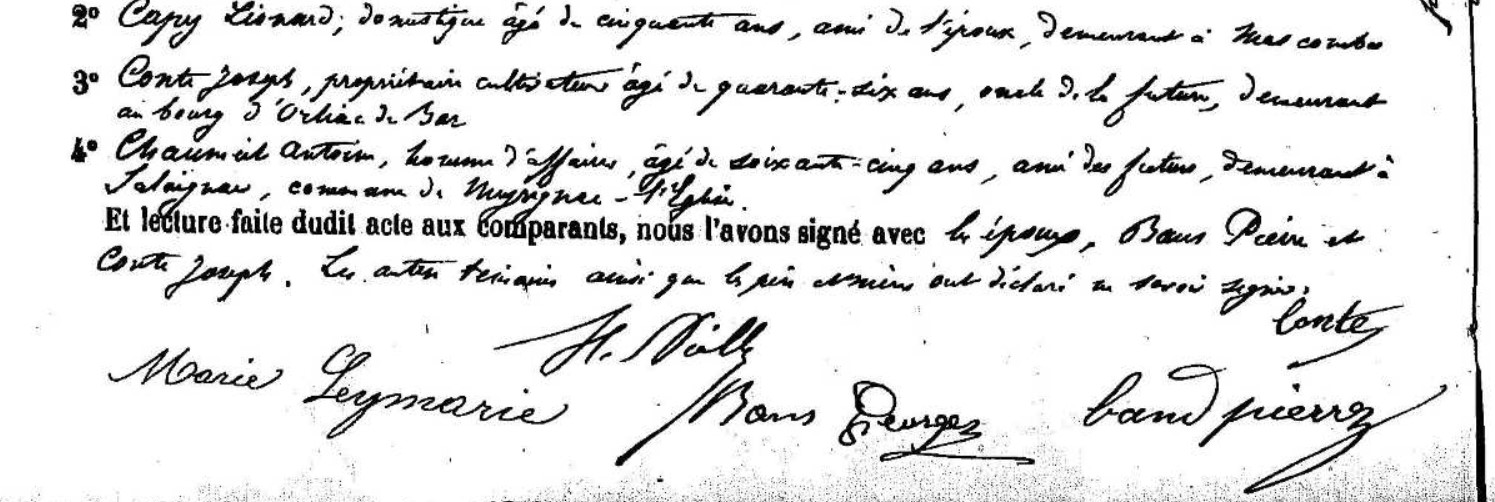 2° Capy Léonard, domestique âgé de cinquante ans, ami de l'époux, demeurant à Mascombes
3° Conte Joseph, propriétaire cultivateur âgé de quarante-six ans, oncle de la future, demeurant
au bourg d'Orliac de Bar
4° Chaumeil Antoine, homme d'affaires, âgé de soixante-cinq ans, ami des futurs, demeurant à
commune de Meyrignac-l'Eglise.
Et lecture faite dudit acte aux comparants, nous l'avons signé avec les époux, Bans Pierre et
Conte Joseph. Les autres témoins ainsi que les père et mères ont déclaré ne savoir signer.
Conte
Marie Leymarie
Bans Georges
pierre